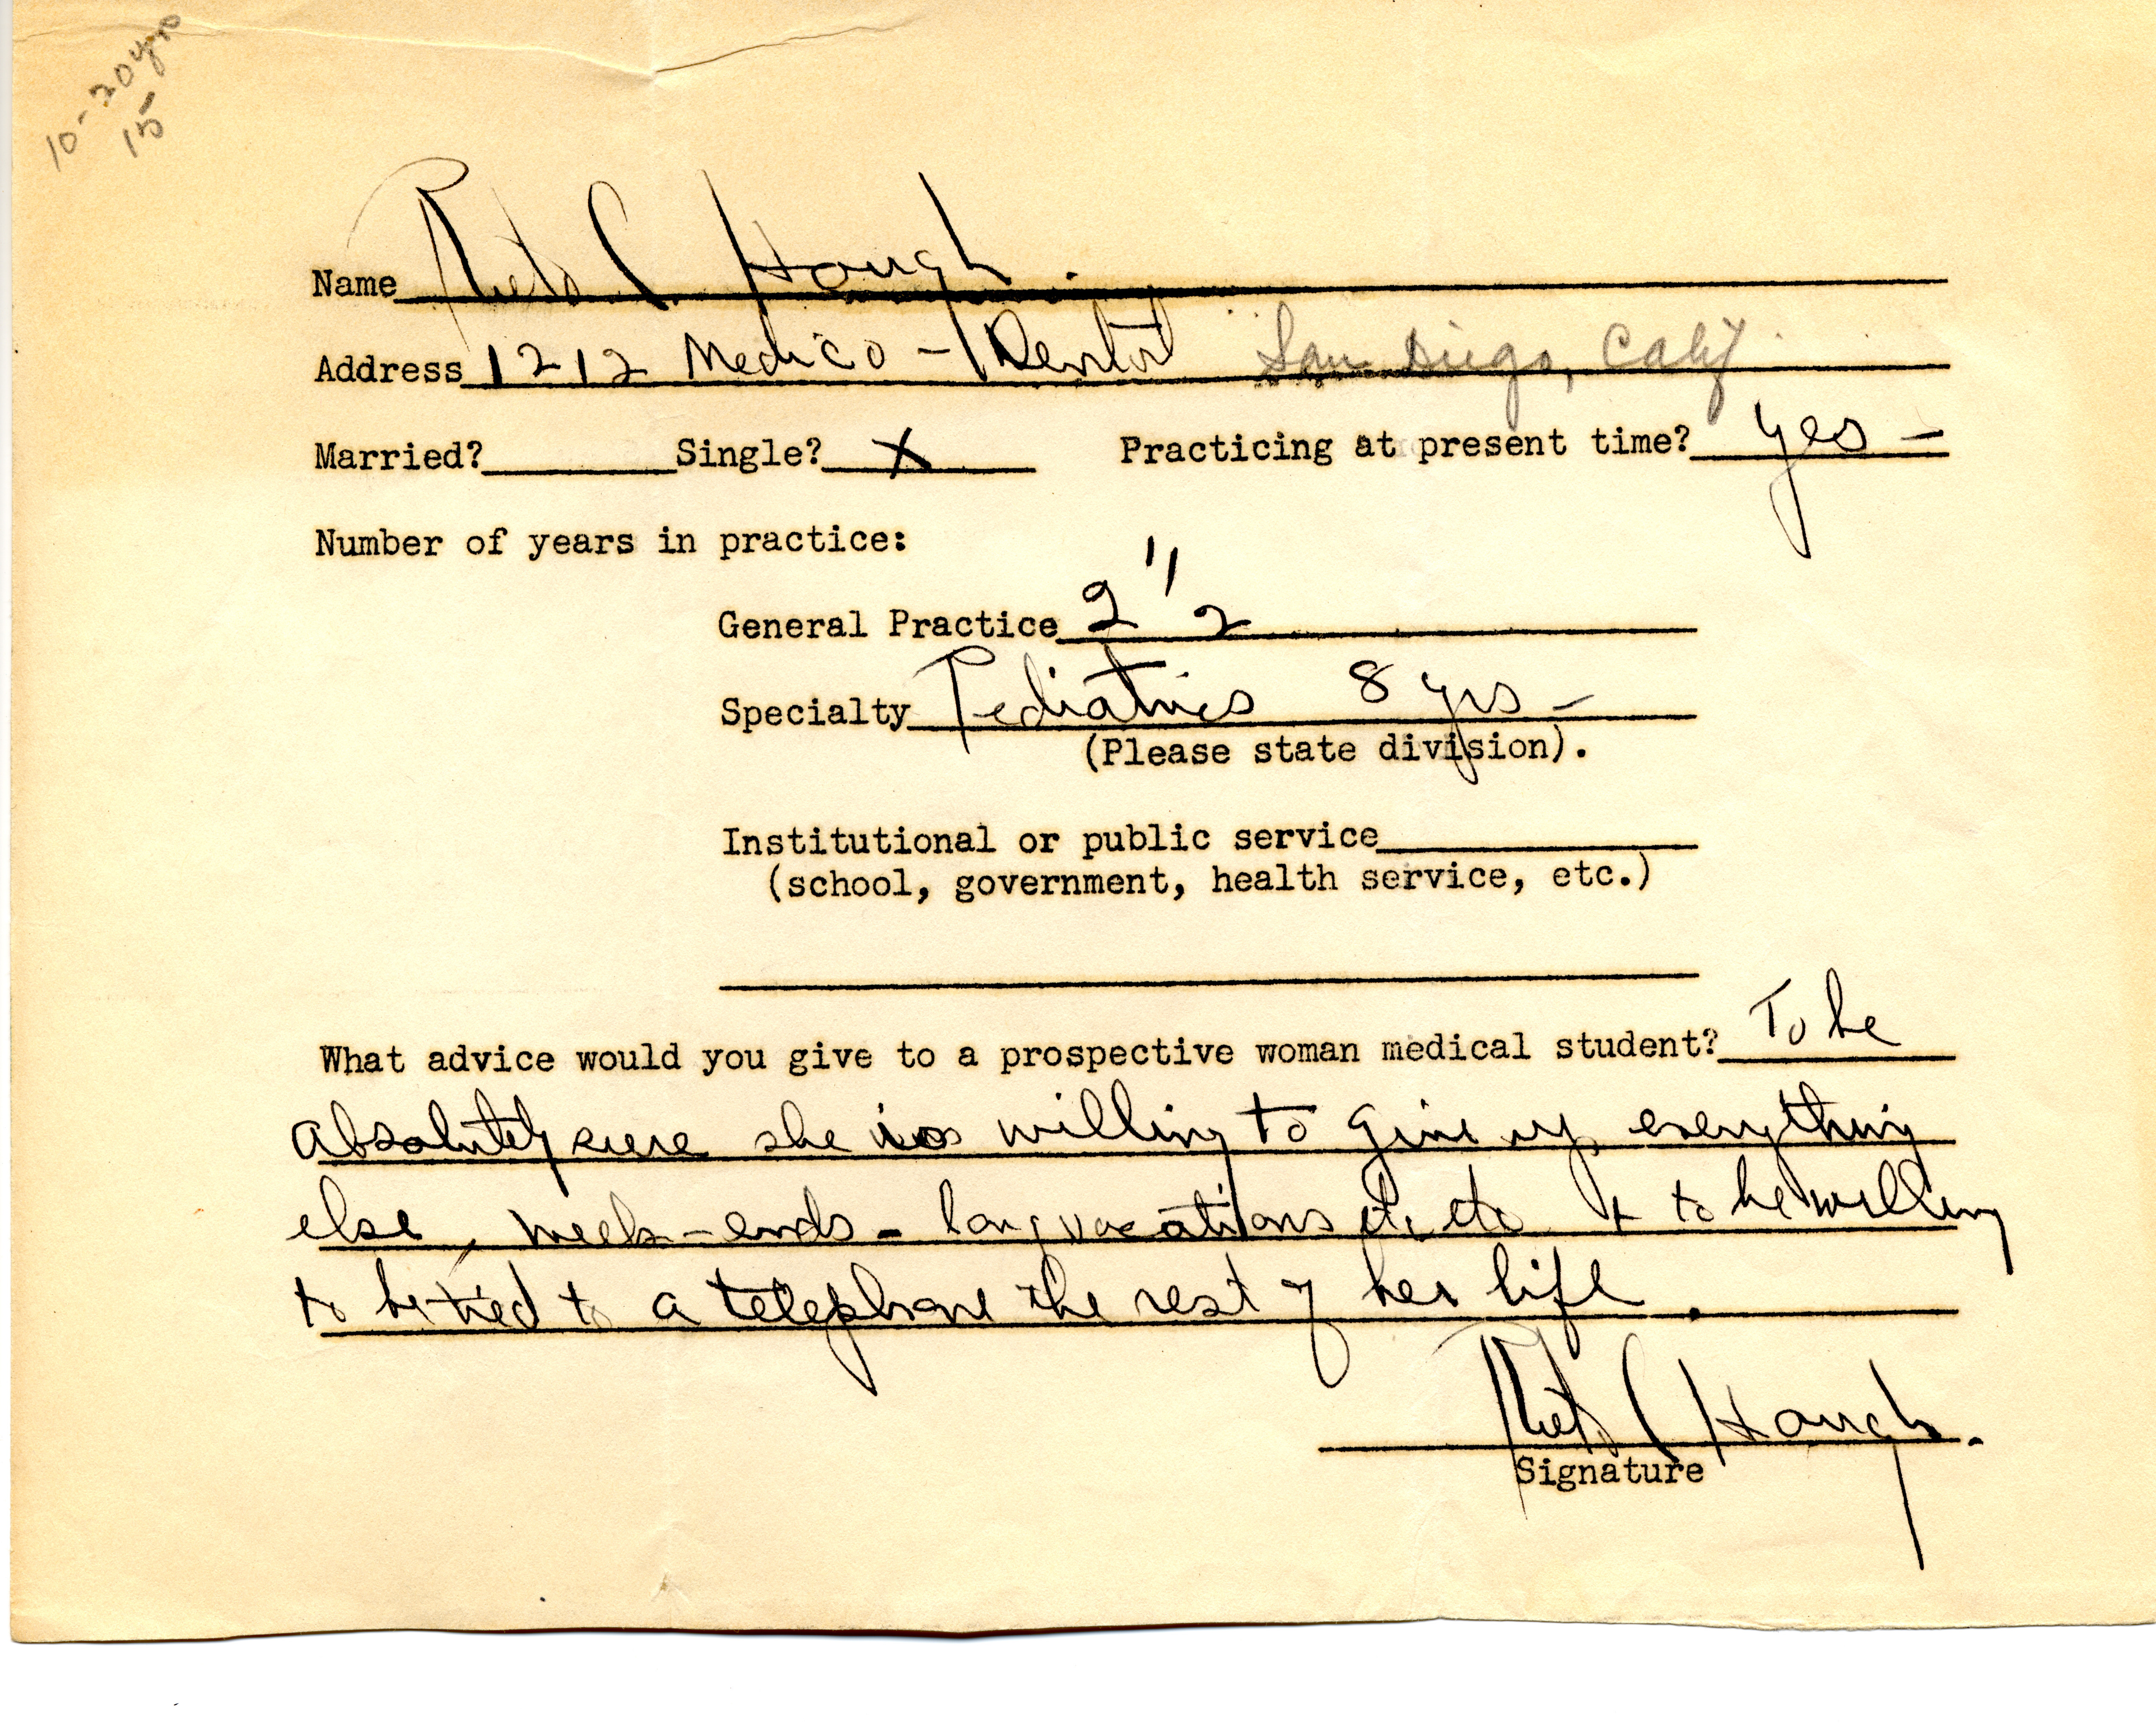 10-20 yrs
15
Name Rieta C. Hough.
Address 1212 Medico-Dental San Diego, Calif
Married? Single? X Practicing at present time? yes —
Number of years in practice:
General Practice 2 1/2
Specialty Pediatrics 8 yrs —
(Please state division).
Institutional or public service
(school, government, health service, etc.)
What advice would you give to a prospective woman medical student? To be
absolutely sure she is willing to give up everything
else, week-ends - long vacations etc etc + to be willing
to be tied to a telephone the rest of her life.
Rieta C Hough.
Signature